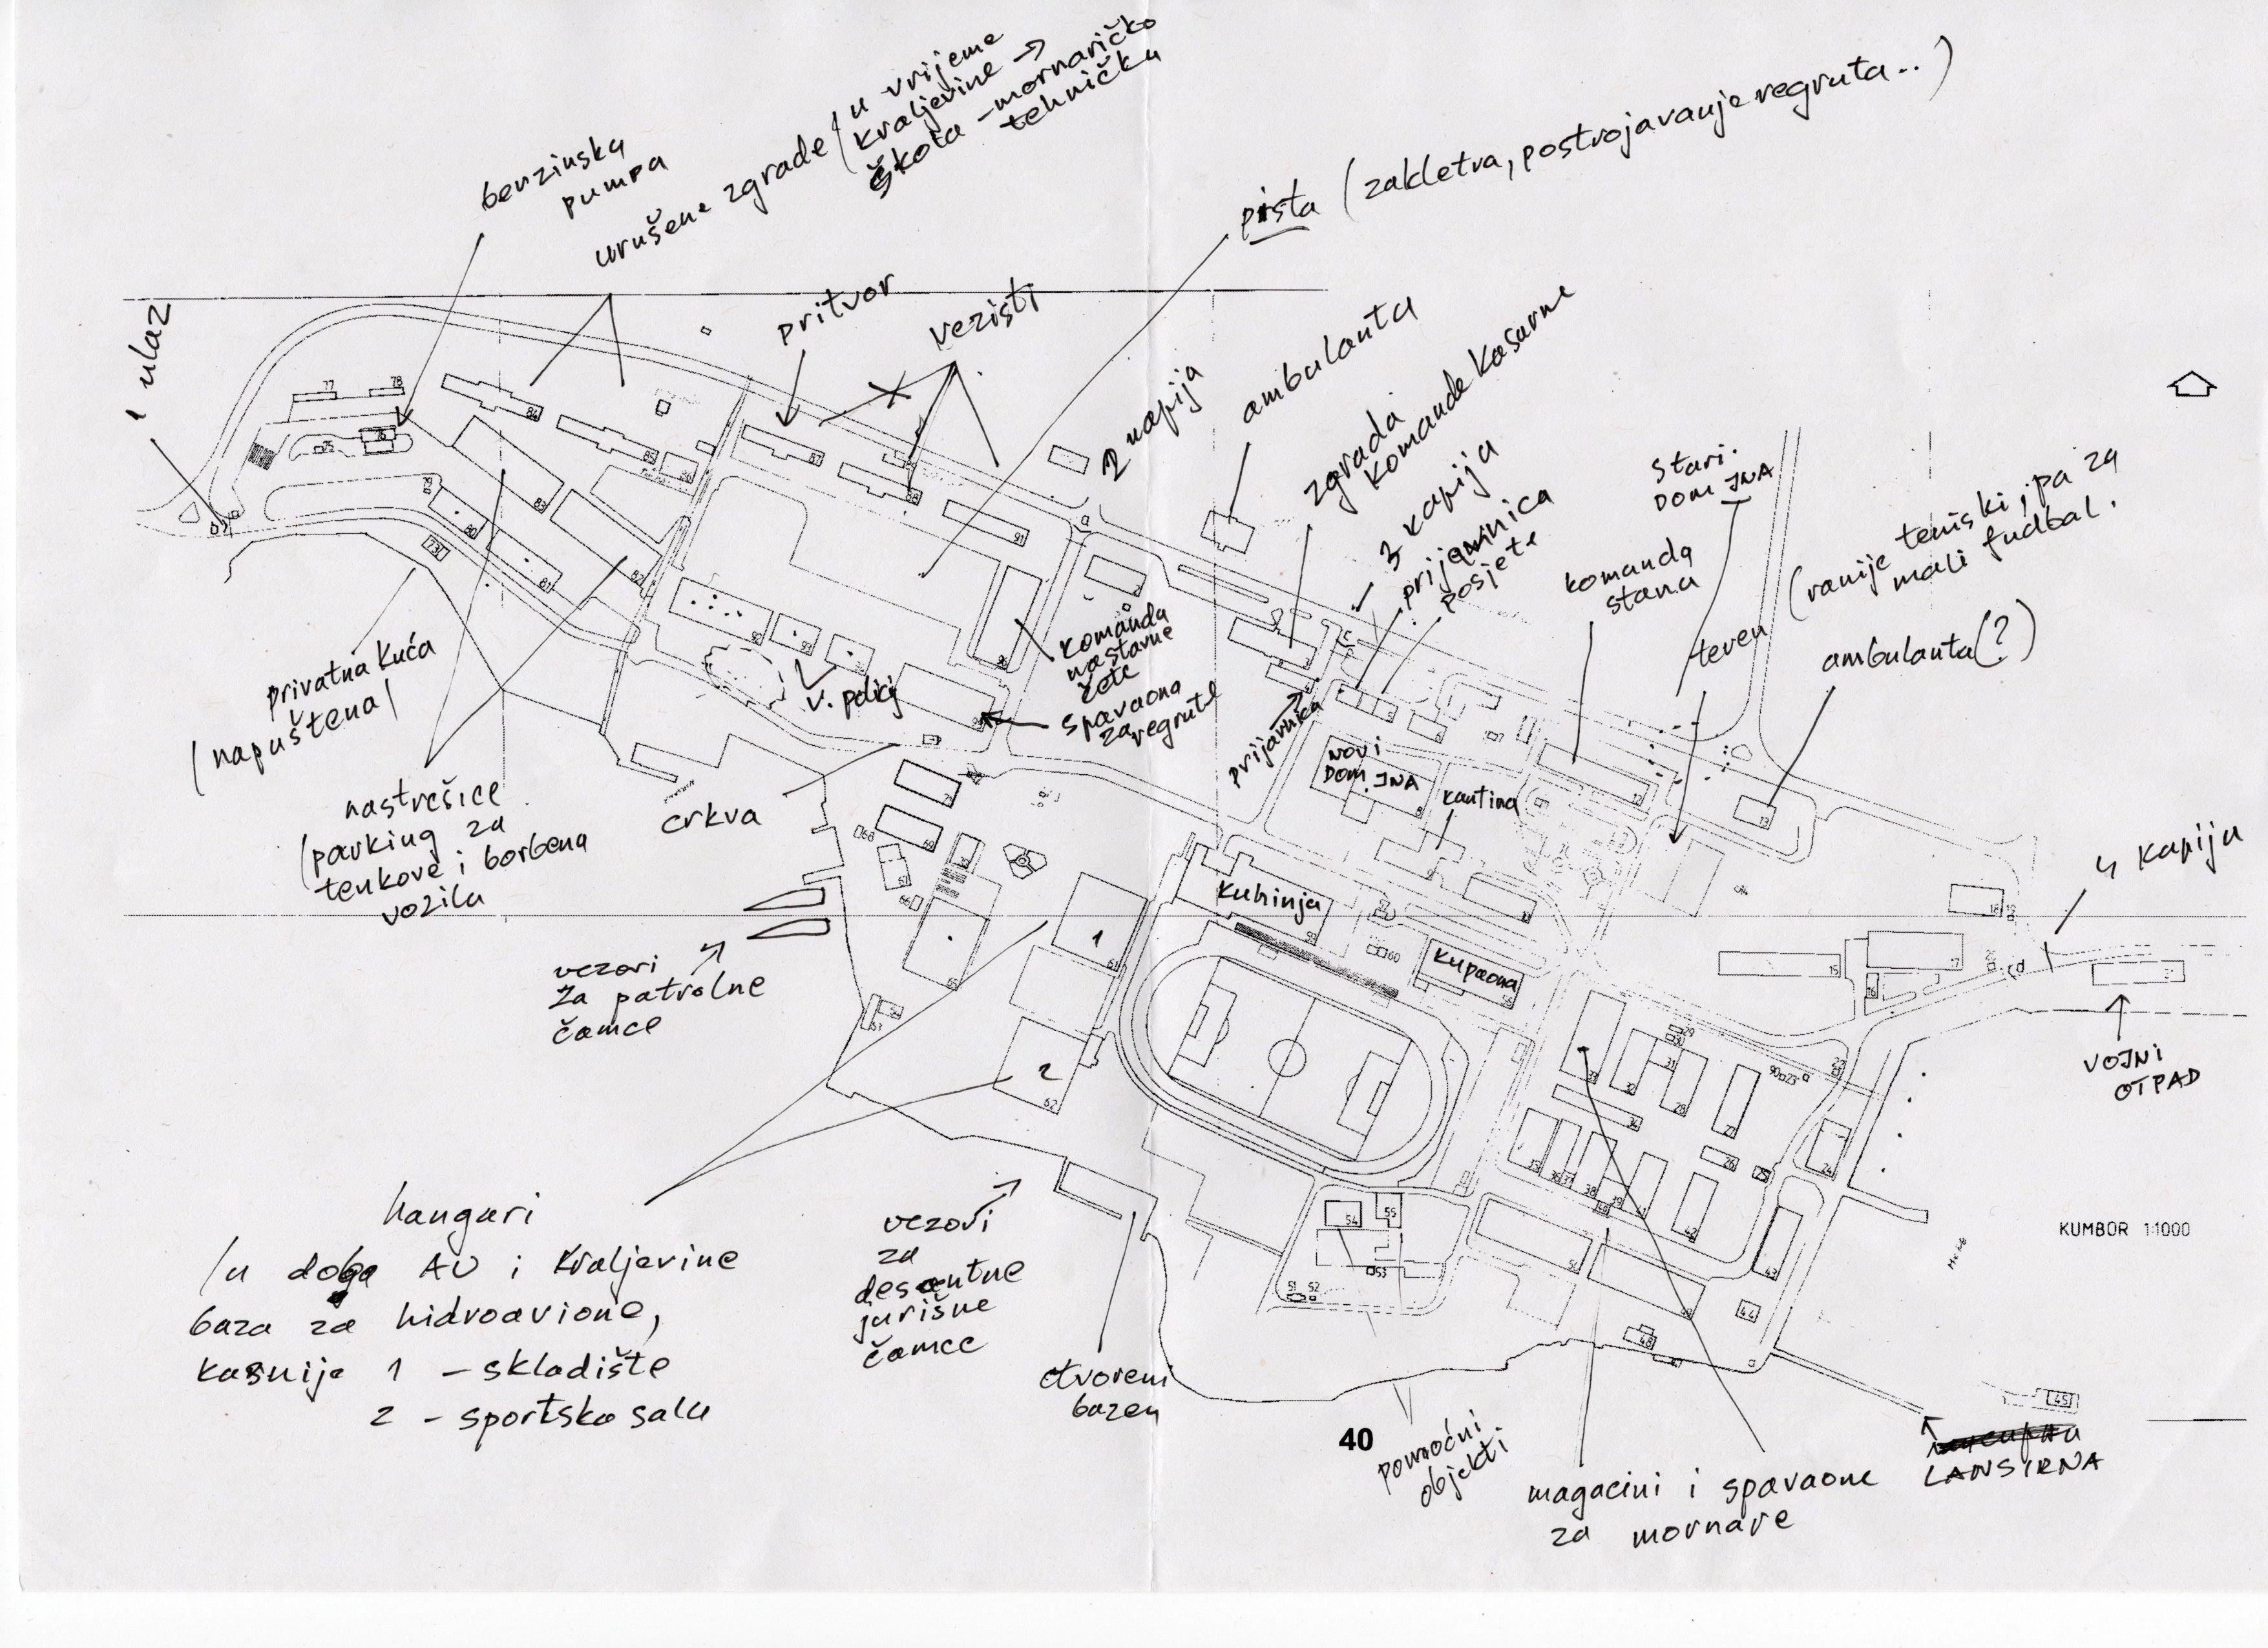 u vrijeme
kraljevine →
škola - mornaričko
tehnička
benzinska
pumpa
urušene zgrade /
pista (zakletva, postrojavanje regruta..)
1 ulaz
pritvor
vezisti
2 kapija
ambulanta
zgrada
komande kasarne
3 kapija
prijemnica
posjete
stari
DOM JNA
komanda
stana
teren
(ranije teniski, pa za
mali fudbal.
ambulanta(?)
77
78
75
76
84
85
86
83
82
79
80
81
73
87
88
91
90
92
93
privatna kuća
/napuštena/
v. policij
komanda
nastavne
čete
spavaona
za regrute
prijavnica
NOVI
DOM JNA
kantina
nastrešice
(parking za
tenkove i borbena
vozila
crkva
4 kapija
kuhinja
kupaona
vezovi
za patrolne
čamce
1
61
2
62
60
68
67
66
12
13
15
16
17
18
19
VOJNI
OTPAD
29
31
32
33
28
27
26
25
24
34
35
36
37
38
39
41
42
43
44
48
49
50
51
52
53
54
55
45
KUMBOR 1:1000
hangari
/u doba AU i Kraljevine
baza za hidroavione,
kasnije 1 - skladište
2 - sportska sala
vezovi
za
desantne
jurišne
čamce
otvoreni
bazen
40
pomoćni
objekti
magacini i spavaone
za mornare
LANSIRNA